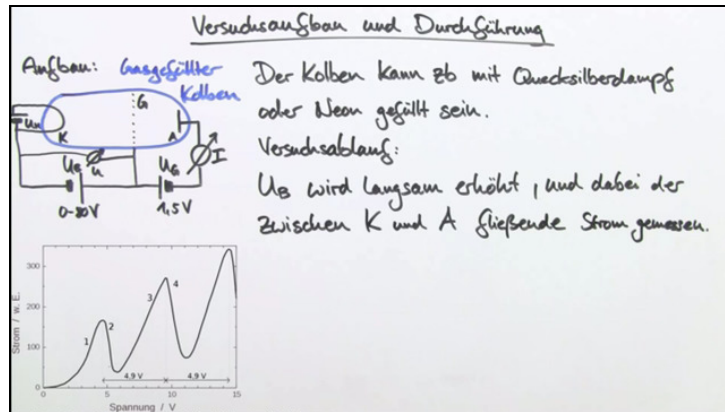 Versuchsaufbau und Durchführung
Aufbau: Gasgefüllter
Kolben
G
U_H
K
A
U_B
U
U_G
I
0-80V
1,5V
Der Kolben kann zb mit Quecksilberdampf
oder Neon gefüllt sein.
Versuchsablauf:
U_B wird langsam erhöht, und dabei der
zwischen K und A fließende Strom gemessen.
Strom / w. E.
300
200
100
0
1
2
3
4
4,9 V
4,9 V
0
5
10
15
Spannung / V